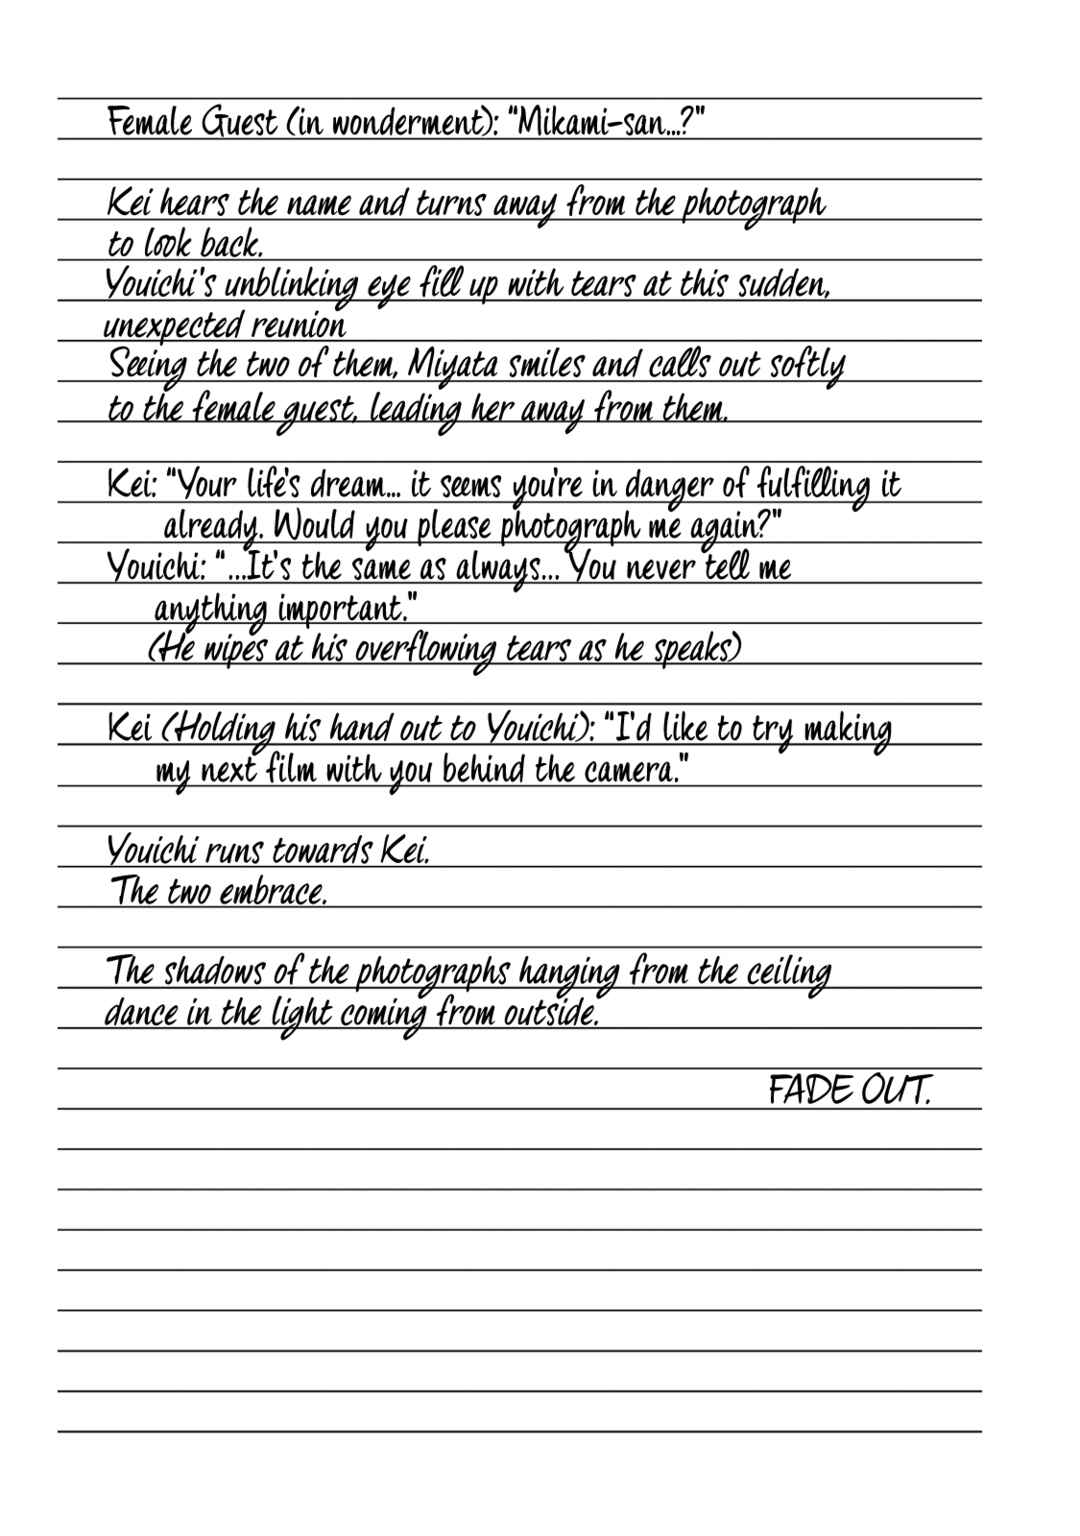 Female Guest (in wonderment): "Mikami-san...?"
Kei hears the name and turns away from the photograph
to look back.
Youichi's unblinking eye fill up with tears at this sudden,
unexpected reunion
Seeing the two of them, Miyata smiles and calls out softly
to the female guest, leading her away from them.
Kei: "Your life's dream... it seems you're in danger of fulfilling it
already. Would you please photograph me again?"
Youichi: "...It's the same as always... You never tell me
anything important."
(He wipes at his overflowing tears as he speaks)
Kei (Holding his hand out to Youichi): "I'd like to try making
my next film with you behind the camera."
Youichi runs towards Kei.
The two embrace.
The shadows of the photographs hanging from the ceiling
dance in the light coming from outside.
FADE OUT.